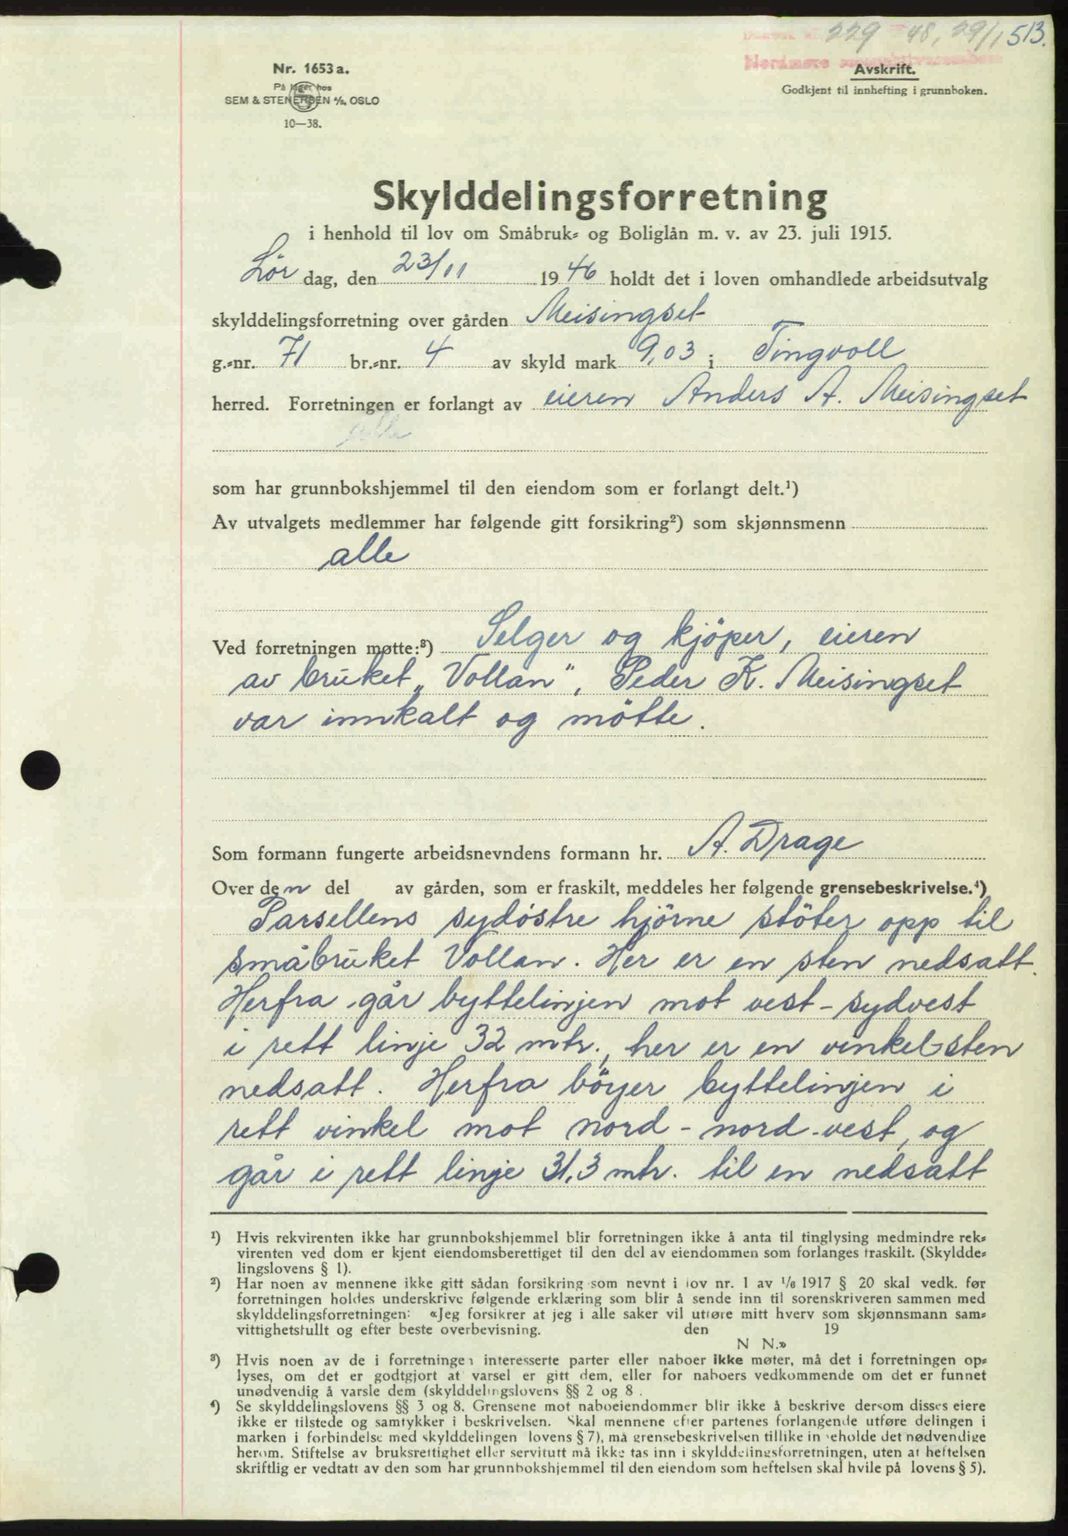 229 48, 29/1 513.
Nordmøre
Nr. 1653 a.
På lager hos
SEM & STENERSEN A/S, OSLO
10—38.
Avskrift.
Godkjent til innhefting i grunnboken.
Skylddelingsforretning
i henhold til lov om Småbruk- og Boliglån m. v. av 23. juli 1915.
Lørdag, den 23/11 1946 holdt det i loven omhandlede arbeidsutvalg
skylddelingsforretning over gården Meisingset
g.-nr. 71 br.-nr. 4 av skyld mark 9,03 i Tingvoll
herred. Forretningen er forlangt av eieren Anders A. Meisingset
alle
som har grunnbokshjemmel til den eiendom som er forlangt delt.¹)
Av utvalgets medlemmer har følgende gitt forsikring²) som skjønnsmenn
alle
Ved forretningen møtte:³) Selger og kjöper, eieren
av bruket „Vollan", Peder K. Meisingset
var innkalt og mötte.
Som formann fungerte arbeidsnevndens formann hr. A. Drage
Over den del av gården, som er fraskilt, meddeles her følgende grensebeskrivelse.⁴)
Parsellens sydöstre hjörne stöter opp til
småbruket Vollan. Her er en sten nedsatt.
Herfra går byttelinjen mot vest-sydvest
i rett linje 32 mtr., her er en vinkelsten
nedsatt. Herfra böyer byttelinjen i
rett vinkel mot nord-nord-vest, og
går i rett linje 31,3 mtr. til en nedsatt
¹) Hvis rekvirenten ikke har grunnbokshjemmel blir forretningen ikke å anta til tinglysing medmindre rek-
virenten ved dom er kjent eiendomsberettiget til den del av eiendommen som forlanges fraskilt. (Skyldde-
lingslovens § 1).
²) Har noen av mennene ikke gitt sådan forsikring som nevnt i lov nr. 1 av 1/6 1917 § 20 skal vedk. før
forretningen holdes underskrive følgende erklæring som blir å sende inn til sorenskriveren sammen med
skylddelingsforretningen: «Jeg forsikrer at jeg i alle saker vil utføre mitt hverv som skjønnsmann sam-
vittighetsfullt og efter beste overbevisning. den 19
N N.»
³) Hvis noen av de i forretningen interesserte parter eller naboer ikke møter, må det i forretningen op-
lyses, om det er godtgjort at varsel er gitt dem, eller for naboers vedkommende om det er funnet
unødvendig å varsle dem (skylddelingslovens §§ 2 og 8 .
⁴) Se skylddelingslovens §§ 3 og 8. Grensene mot naboeiendommer blir ikke å beskrive dersom disses eiere
ikke er tilstede og samtykker i beskrivelsen. Skal mennene efter partenes forlangende utføre delingen i
marken i forbindelse med skylddelingen lovens § 7), må grensebeskrivelsen tillike inneholde det nødvendige
herom. Stiftelse av bruksrettighet eller servitutt må ikke tas inn i skylddelingsforretningen, uten at heftelsen
skriftlig er vedtatt av den som har grunnbokshjemmel til den eiendom som heftelsen skal hvile på lovens § 5).